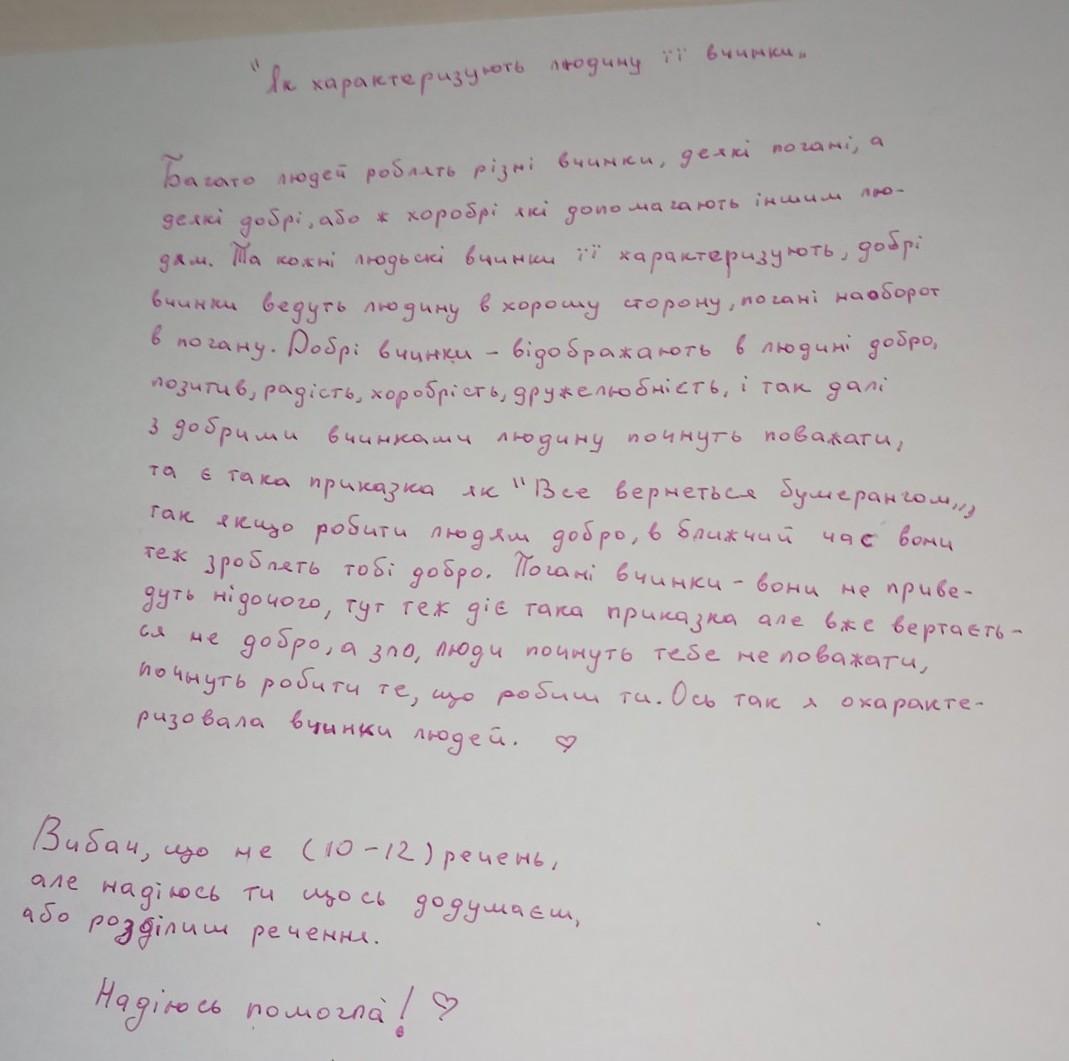 "Як характеризують людину її вчинки„
Багато людей роблять різні вчинки, деякі погані, а
деякі добрі, або ж хоробрі які допомагають іншим лю-
дям. Та кожні людьскі вчинки її характеризують, добрі
вчинки ведуть людину в хорошу сторону, погані наоборот
в погану. Добрі вчинки - відображають в людині добро,
позитив, радість, хоробрість, дружелюбність, і так далі
з добрими вчинками людину почнуть поважати,
та є така приказка як "Все вернеться бумерангом„,
так якщо робити людям добро, в ближчий час вони
теж зроблять тобі добро. Погані вчинки - вони не приве-
дуть нідочого, тут теж діє така приказка але вже вертаєть-
ся не добро, а зло, люди почнуть тебе не поважати,
почнуть робити те, що робиш ти. Ось так я охаракте-
ризовала вчинки людей. ♡
Вибач, що не (10-12) речень,
але надіюсь ти щось додумаєш,
або розділиш речення.
Надіюсь помогла! ♡